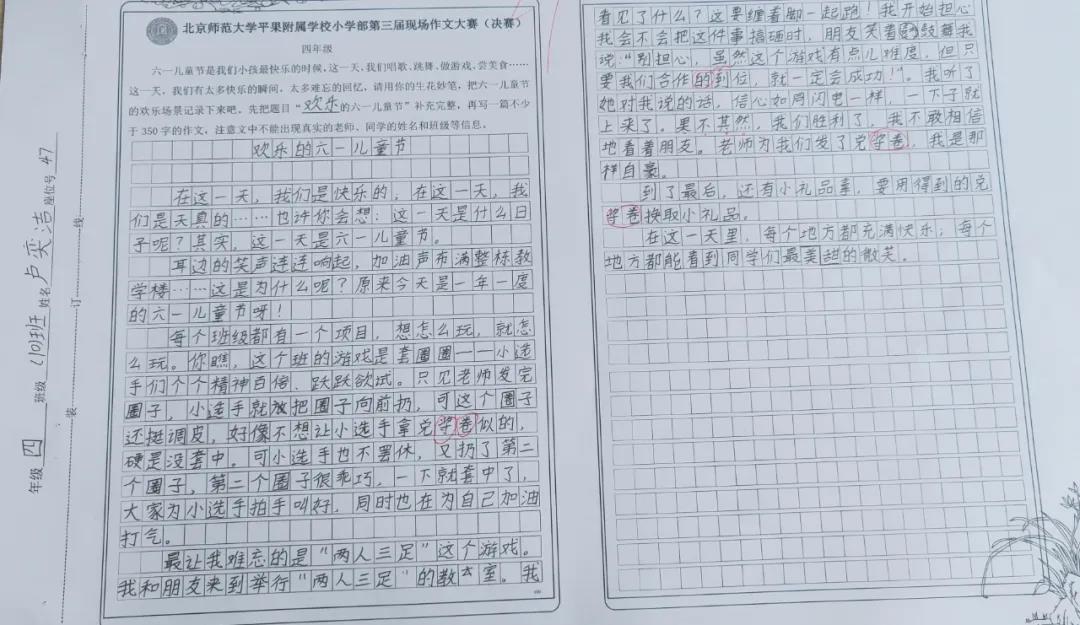 北京师范大学平果附属学校小学部第三届现场作文大赛（决赛）
四年级
六一儿童节是我们小孩最快乐的时候，这一天，我们唱歌、跳舞、做游戏、尝美食……
这一天，我们有太多快乐的瞬间，太多难忘的回忆，请用你的生花妙笔，把六一儿童节
的欢乐场景记录下来吧。先把题目“欢乐的六一儿童节”补充完整，再写一篇不少
于 350 字的作文，注意文中不能出现真实的老师、同学的姓名和班级等信息。
欢乐的六一儿童节
在这一天，我们是快乐的；在这一天，我
们是天真的……也许你会想：这一天是什么日
子呢？其实，这一天是六一儿童节。
耳边的笑声连连响起，加油声布满整栋教
学楼……这是为什么呢？原来今天是一年一度
的六一儿童节呀！
每个班级都有一个项目，想怎么玩，就怎
么玩。你瞧，这个班的游戏是套圈圈——小选
手们个个精神百倍、跃跃欲试。只见老师发完
圈子，小选手就把圈子向前扔，可这个圈子
还挺调皮，好像不想让小选手拿兑奖卷似的，
硬是没套中。可小选手也不罢休，又扔了第二
个圈子，第二个圈子很乖巧，一下就套中了，
大家为小选手拍手叫好，同时也在为自己加油
打气。
最让我难忘的是“两人三足”这个游戏。
我和朋友来到举行“两人三足”的教室。我
看见了什么？这要缠着脚一起跑！我开始担心
我会不会把这件事搞砸时，朋友笑着鼓舞我
说：“别担心，虽然这个游戏有点儿难度，但只
要我们合作的到位，就一定会成功！”。我听了
她对我说的话，信心如同闪电一样，一下子就
上来了。果不其然，我们胜利了，我不敢相信
地看着朋友。老师为我们发了兑奖卷，我是那
样自豪。
到了最后，还有小礼品拿，要用得到的兑
奖卷换取小礼品。
在这一天里，每个地方都充满快乐；每个
地方都能看到同学们最美甜的微笑。
年级 四 班级 (10)班 姓名 卢奕洁 座位号 47
装 订 线